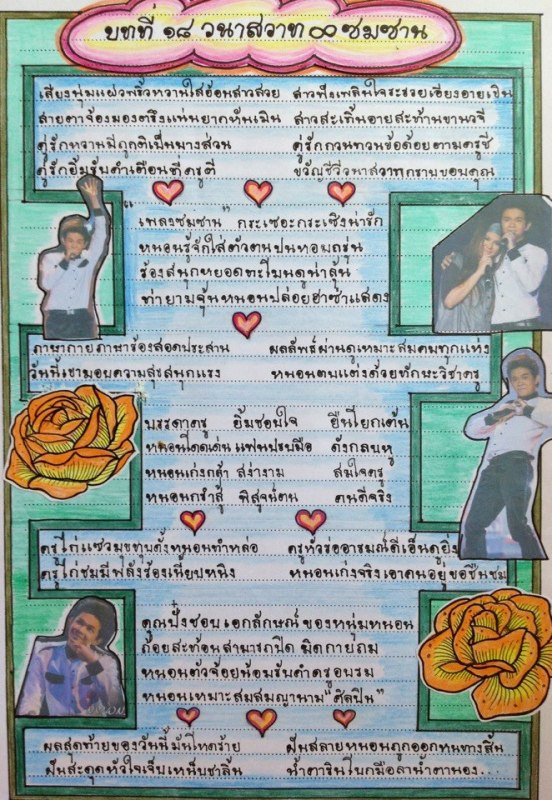 บทที่ ๑๘ วนาสวาท ๙ ชมซาน
เสียงนุ่มแผ่วพริ้วหวานใส่อ้อนสาวสวย สาวฟังเพลินใจระรวยเอียงอายเขิน
สายตาจ้องมองตรึงแน่นยากหันเมิน สาวสะเทิ้นอายสะท้านซ่านวจี
คู่รักหวานมีถูกติเป็นบางส่วน คู่รักกวนทวนข้อด้อยตามครูชี้
คู่รักยิ้มรับคำเตือนที่ครูติ ขวัญชีวีวนาสวาทกราบขอบคุณ
"เพลงชมซาน" กระเซอะกระเซิงน่ารัก
หนอนรู้จักใส่ตัวตนปนหอมกรุ่น
ร้องสนุกหยอดทะโมนดูน่าลุ้น
ท่ายามจุ้นหนอนปล่อยฮาซ่าแสดง
ภาษากายภาษาร้องสอดประสาน ผลลัพธ์ผ่านดูเหมาะสมคมทุกแห่ง
วันนี้เขามอบความสุขสนุกแรง หนอนตบแต่งด้วยทักษะวิชาครู
บรรดาครู ยิ้มชอบใจ ยืนโยกเต้น
หนอนโดดเด่น แฟนปรบมือ ดังกลบหู
หนอนเก่งกล้า สง่างาม สมใจครู
หนอนกรำสู้ พิสูจน์ตน คนดีจริง
ครูไก่แซวมุขทุบตั้งหนอนทำหล่อ ครูหัวร่ออารมณ์ดีเอ็นดูยิ่ง
ครูไก่ชมมีพลังร้องเนี้ยบหนิง หนอนเก่งจริงเอาคนอยู่ขอชื่นชม
คุณปั๋งชอบเอกลักษณ์ของหนุ่มหนอน
ถ้อยสะท้อนสามารถปิดมิดกายถม
หนอนตัวจ้อยน้อมรับคำครูอบรม
หนอนเหมาะสมสมญานาม "ศิลปิน"
ผลสุดท้ายของวันนี้มันโหดร้าย ฝันสลายหนอนถูกออกหนทางสิ้น
ฝันสะดุดหัวใจเจ็บเหน็บชาลิ้น น้ำตารินโบกมือลาน้ำตานอง...